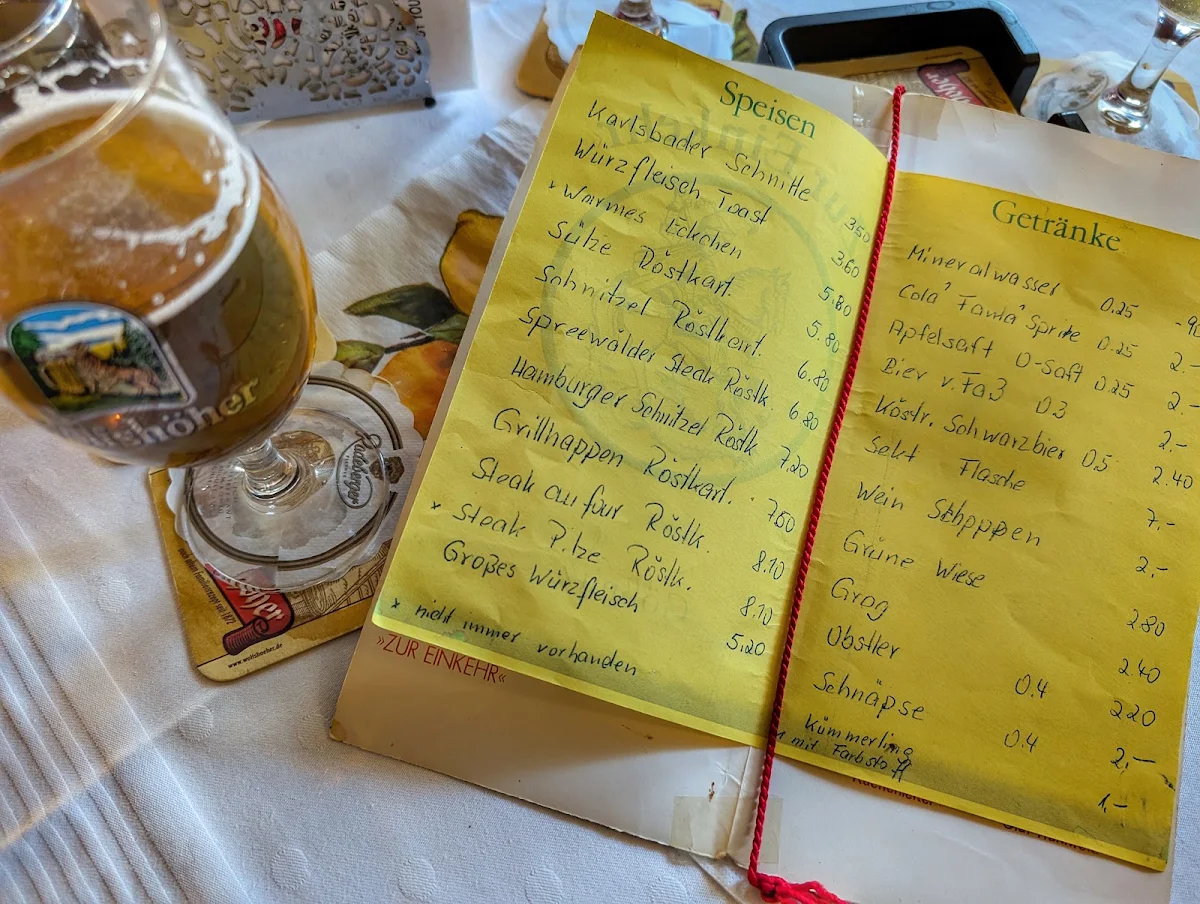 Speisen
Karlsbader Schnitte 3.50
Würzfleisch Toast 3.60
* Warmes Eckchen 5.80
Sülze Röstkart. 5.80
Schnitzel Röstkart. 6.80
Spreewälder Steak Röstk. 6.80
Hamburger Schnitzel Röstk. 7.20
Grillhappen Röstkart. 7.50
Steak au four Röstk. 8.10
* Steak Pilze Röstk. 8.10
Großes Würzfleisch 5.20
* nicht immer vorhanden
»ZUR EINKEHR«
Getränke
Mineralwasser 0.25
Cola' Fanta' Sprite 0.25 2.-
Apfelsaft O-Saft 0.25 2.-
Bier v. Faß 0.3 2.-
Köstr. Schwarzbier 0.5 2.40
Sekt Flasche 7.-
Wein Schoppen 2.-
Grüne Wiese 2.80
Grog 2.40
Obstler 0.4 2.20
Schnäpse 0.4 2.-
Kümmerling 1.-
mit Farbstoff
Radeberger
www.wolfshoeher.de